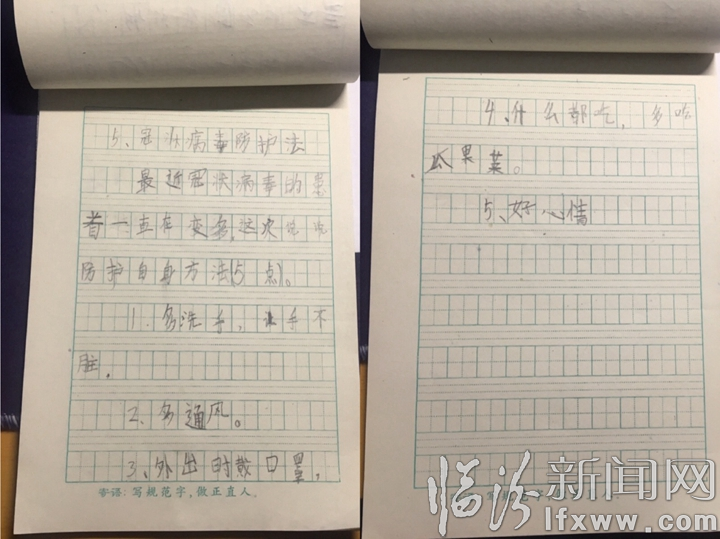 5、冠状病毒防护法
最近冠状病毒的患
者一直在变多,这次说说
防护自身方法(5点)。
1.多洗手,让手不
脏.
2.多通风。
3、外出时戴口罩,
寄语:写规范字,做正直人。
4、什么都吃,多吃
瓜果菜。
5、好心情
临汾新闻网
lfxww.com